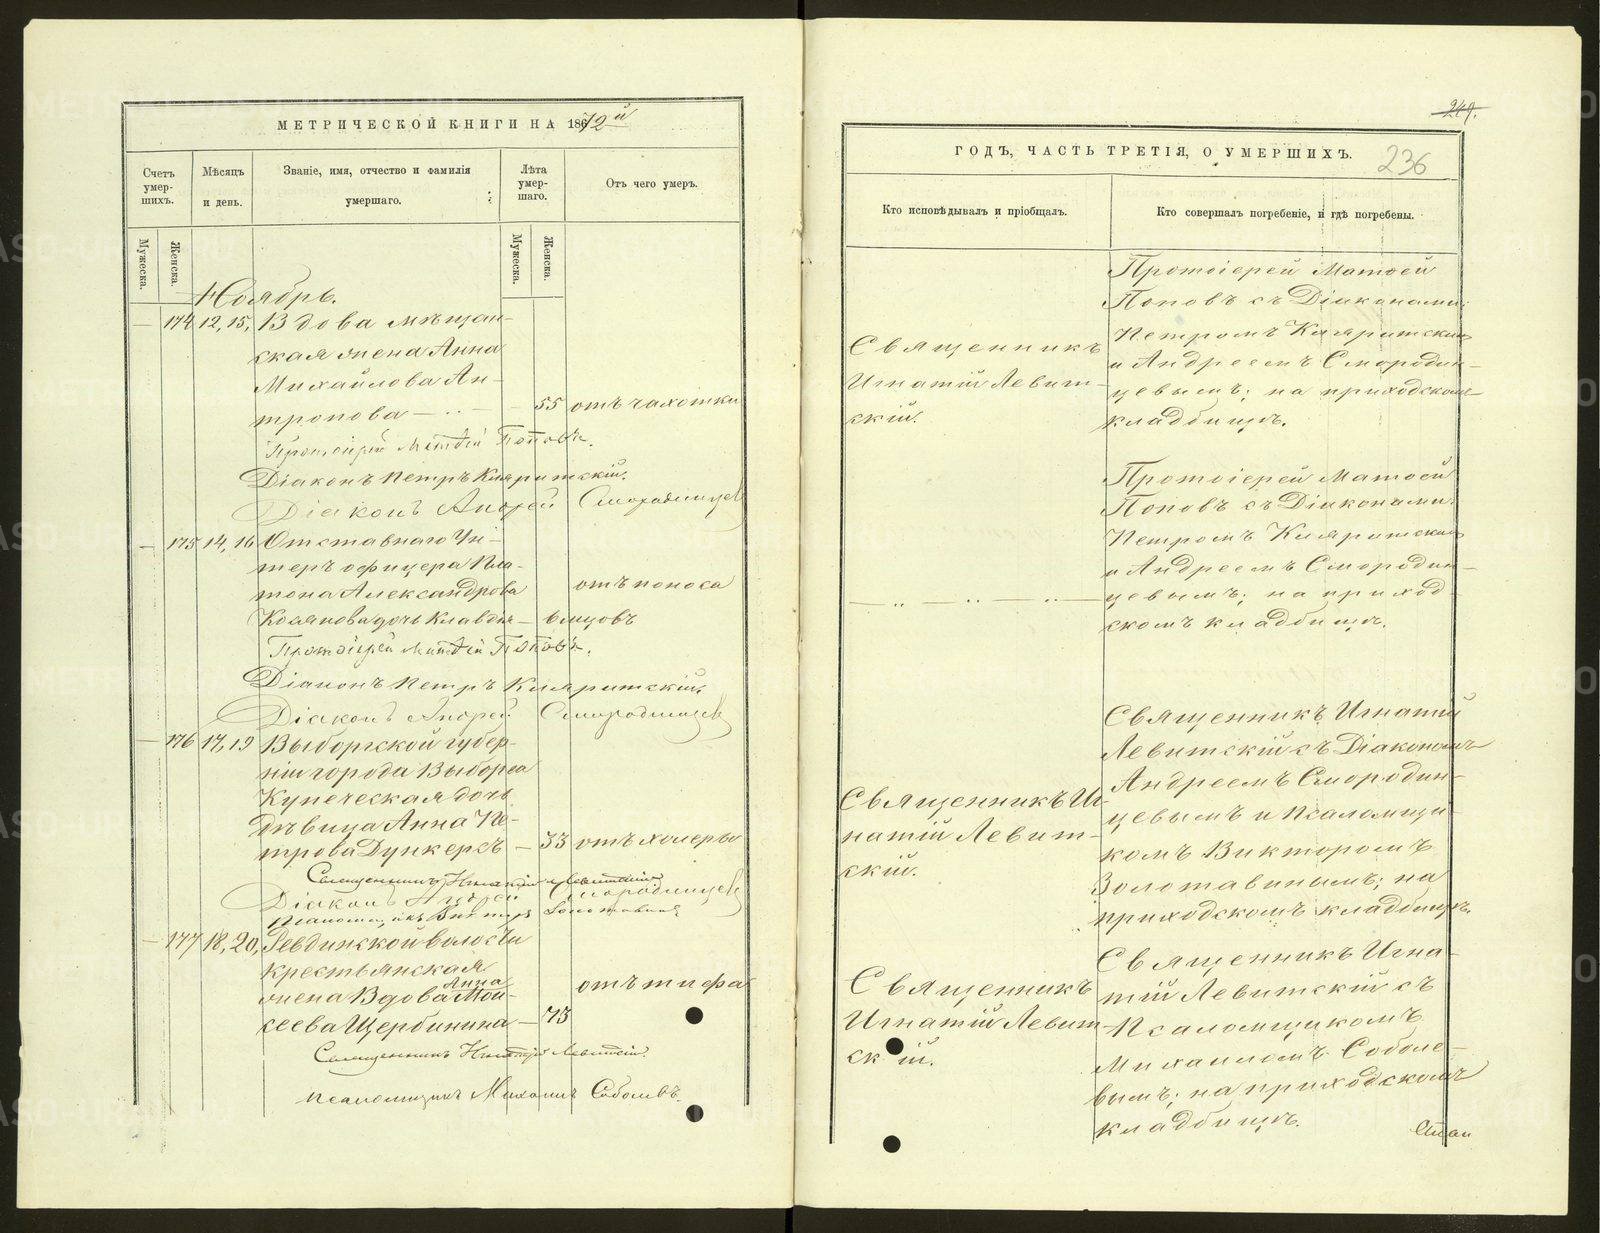 МЕТРИЧЕСКОЙ КНИГИ НА 1872й
Счетъ умер-шихъ.
Мѣсяцъ и день.
Званіе, имя, отчество и фамилія умершаго.
Лѣта умер-шаго.
Отъ чего умеръ.
Мужеска.
Женска.
Мужеска.
Женска.
Ноябрь.
— 174 12, 15, Вдова мѣщан-
ская жена Анна
Михайлова Ан-
тропова — 55 отъ чахотки
Протоіерей Матѳій Поповъ.
Діаконъ Петръ Кляритскій.
Діаконъ Андрей Смородинцев
— 175 14, 16 Отставнаго Ун-
теръ офицера Пла-
тона Александрова отъ поноса
дочь Клавдія — 6 мцовъ
Протоіерей Матѳій Поповъ.
Діаконъ Петръ Кляритскій.
Діаконъ Андрей Смородинцев
— 176 17, 19 Выборгской губер-
ніи города Выборга
Купеческая дочь
дѣвица Анна Пе-
трова Дункеръ — 33 отъ холеры
Священникъ Игнатій Левитскій
Діаконъ Андрей Смородинцев
Псаломщикъ Викторъ Золотавинъ
— 177 18, 20, Ревдинской волости
крестьянская
жена Вдова Анна Мои- отъ тифа
сеева Щербинина — 73
Священникъ Игнатій Левитскій.
Псаломщикъ Михаилъ Соболевъ.
249.
ГОДЪ, ЧАСТЬ ТРЕТІЯ, О УМЕРШИХЪ.
236
Кто исповѣдывалъ и пріобщалъ.
Кто совершалъ погребеніе, и гдѣ погребены.
Священникъ
Игнатій Левит-
скій.
Протоіерей Матѳей
Поповъ съ Діаконами:
Петромъ Кляритским
и Андреемъ Смородин-
цевымъ; на приходском
кладбищѣ.
— „ — „ — „ —
Протоіерей Матѳей
Поповъ съ Діаконами:
Петромъ Кляритским
и Андреемъ Смородин-
цевымъ; на приход-
скомъ кладбищѣ.
Священникъ Иг-
натій Левит-
скій.
Священникъ Игнатій
Левитскій съ Діакономъ
Андреемъ Смородин-
цевымъ и Псаломщи-
комъ Викторомъ
Золотавинымъ; на
приходскомъ кладбищѣ.
Священникъ
Игнатій Левит-
скій.
Священникъ Игна-
тій Левитскій съ
Псаломщикомъ
Михаиломъ Соболе-
вымъ; на приходскомъ
кладбищѣ.